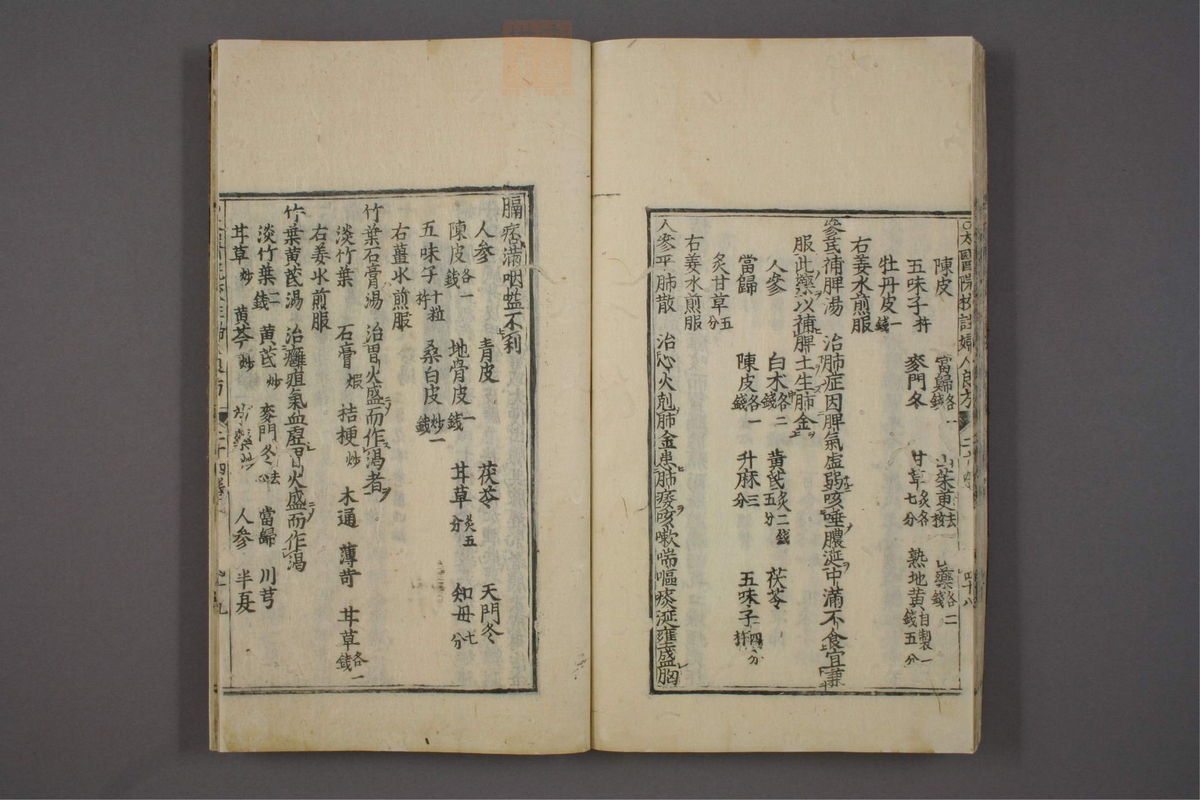 太醫院校註婦人良方 四十八
陳皮 當歸各一錢 山茱萸去核 山藥各二錢
五味子杵 麥門冬 甘草炙各七分 熟地黃自製一錢五分
牡丹皮一錢
右姜水煎服
參芪補脾湯 治肺症因脾氣虛弱咳唾膿涎中滿不食宜兼
服此藥以補脾土生肺金
人參 白朮各二錢 黃芪炙二錢五分 茯苓
當歸 陳皮各一錢 升麻三分 五味子四分杵
炙甘草五分
右姜水煎服
人參平肺散 治心火剋肺金患肺痿咳嗽喘嘔痰涎壅盛胸
膈痞滿咽嗌不利
人參 青皮 茯苓 天門冬
陳皮各一錢 地骨皮一錢 甘草炙五分 知母七分
五味子十粒杵 桑白皮炒一錢
右薑水煎服
竹葉石膏湯 治胃火盛而作渴者
淡竹葉 石膏煆 桔梗炒 木通 薄苛 甘草各一錢
右姜水煎服
竹葉黃芪湯 治癰疽氣血虛胃火盛而作渴
淡竹葉二錢 黃芪炒 麥門冬去心 當歸 川芎
甘草炒 黃芩炒 芍藥炒 人參 半夏